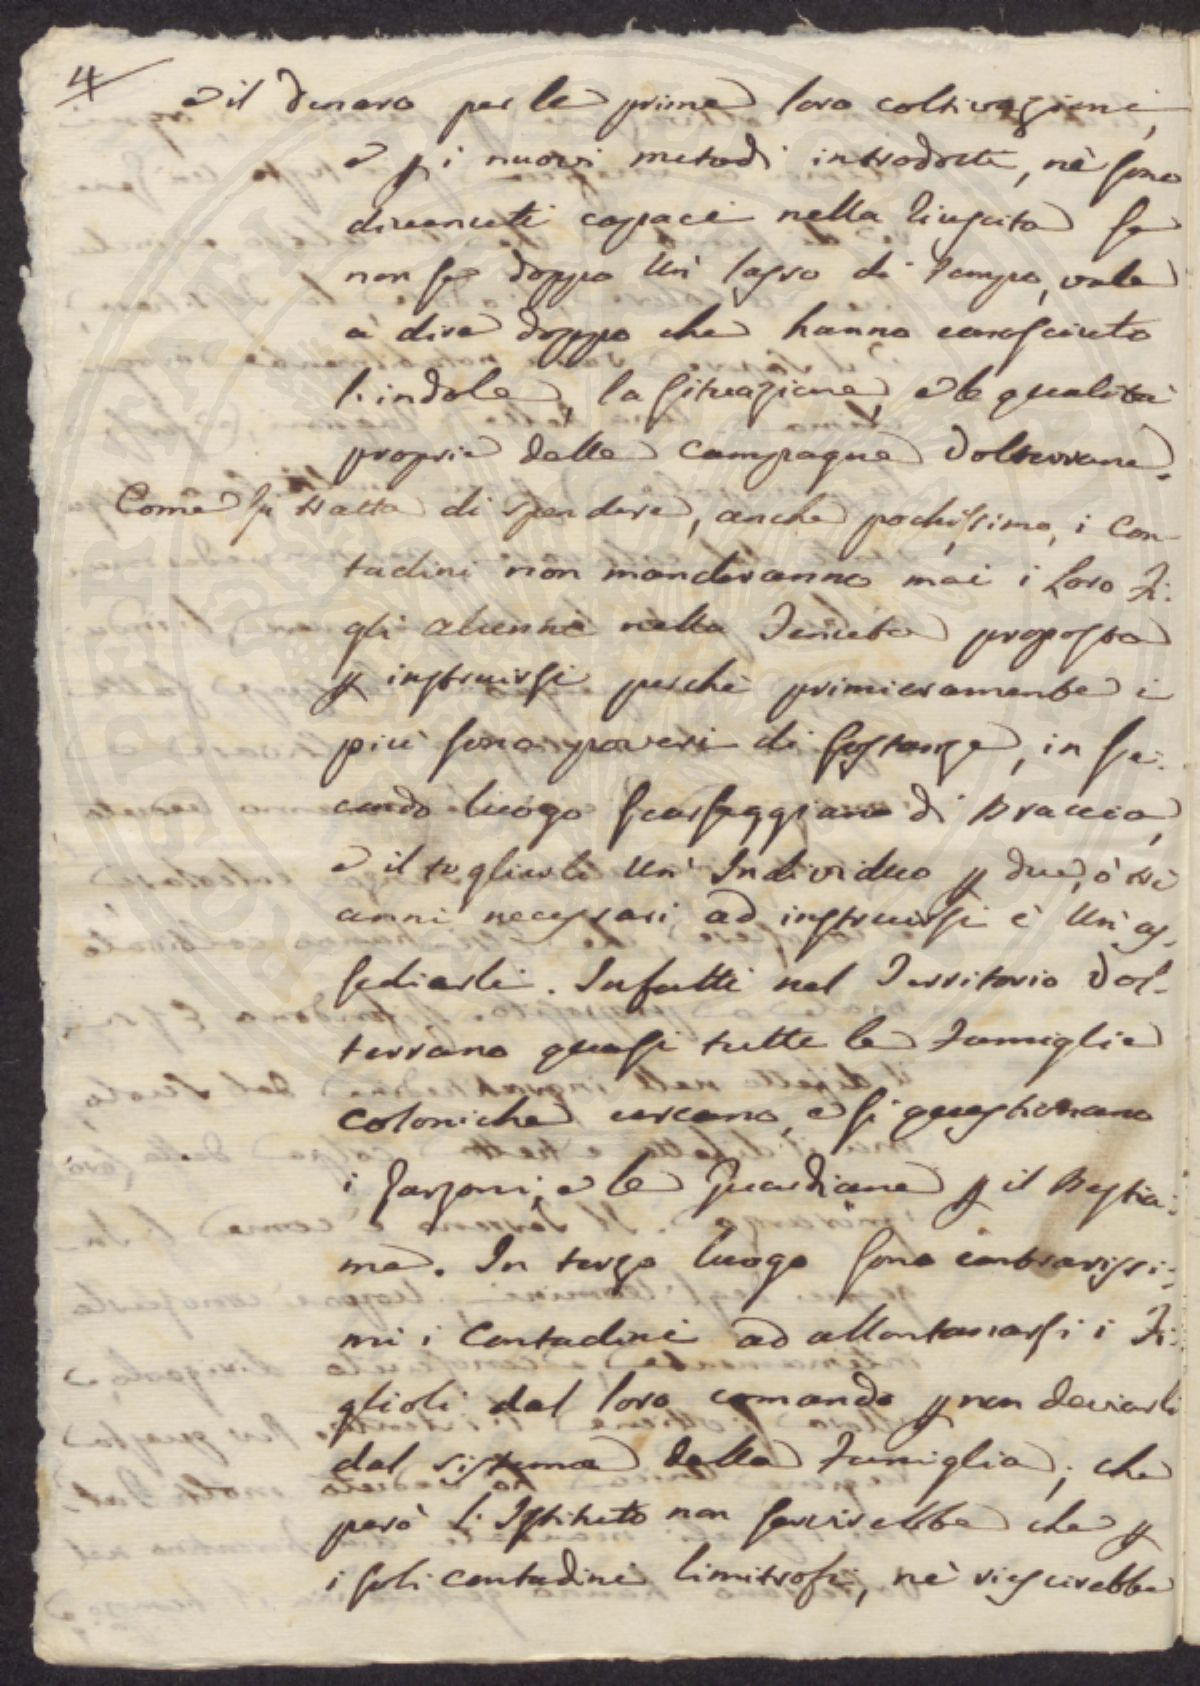 4
e il denaro per le prime loro coltivazioni,
e p i nuovi metodi introdotti, nè sono
divenuti capaci nella riuscita se
non se doppo un' lasso di tempo, vale
a dire doppo che hanno conosciuto
l'indole, la situazione, e le qualità
proprie delle Campagne Volterrane.
Come si tratta di spendere, anche pochissimo, i Con-
tadini non manderanno mai i Loro Fi-
gli alunni nella Tenuta proposta
p instruirsi perchè primieramente i
più sono poveri di sostanze, in se-
condo luogo scarseggiano di Braccia,
e il togliarli un' Individuo p due, ò tre
anni necessari ad instruirsi è un' as-
sediarli. Infatti nel Territorio Vol-
terrano quasi tutte le Famiglie
coloniche cercano, e si questionano
i Garzoni, e le Guardiane p il Bestia-
me. In terzo luogo sono contrarissi-
mi i Contadini ad allontanarsi i Fi-
glioli dal loro comando p non deviarli
dal sistema della Famiglia, che
però l'Istituto non servirebbe che p
i soli contadini limitrofi, nè riescirebbe